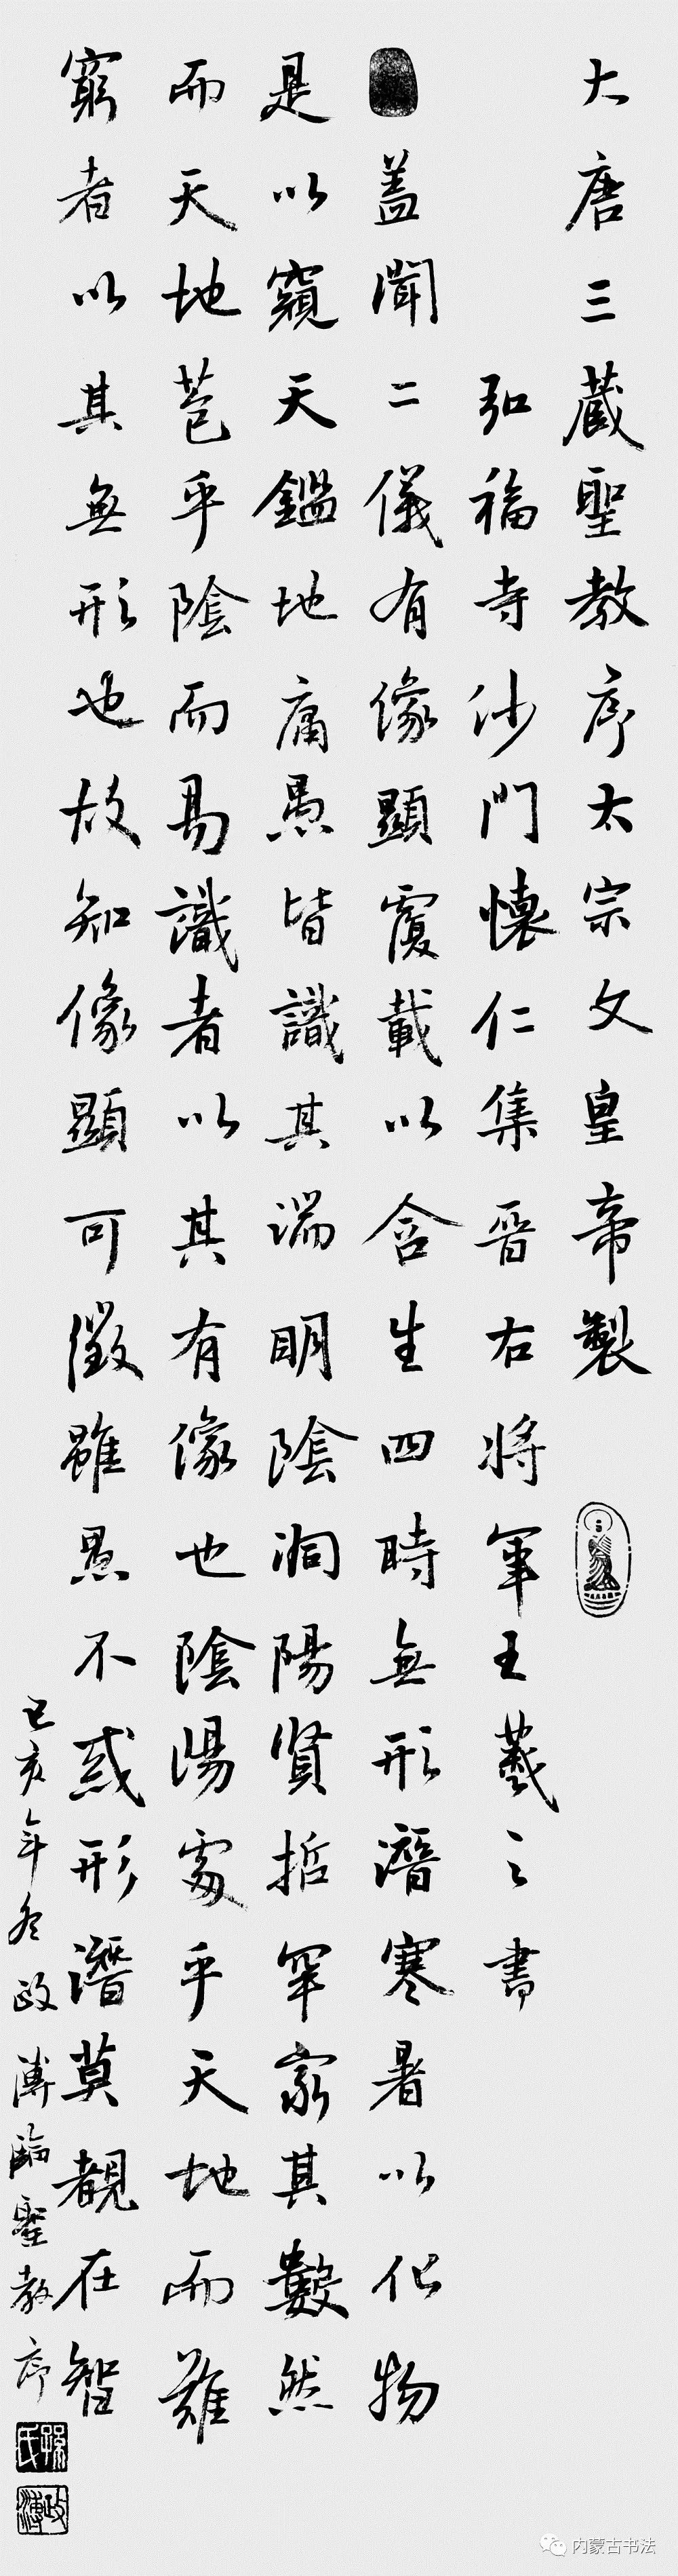 大唐三蔵聖教序太宗文皇帝製
弘福寺沙門懷仁集晉右将軍王羲之書
盖聞二儀有像顯覆載以含生四時無形潛寒暑以化物
是以窺天鑑地庸愚皆識其端明陰洞陽賢哲罕窮其數然
而天地苞乎陰而易識者以其有像也陰陽處乎天地而難
窮者以其無形也故知像顯可徵雖愚不惑形潛莫覩在智
己亥年冬政溥臨聖教序
孫氏
政溥
内蒙古书法